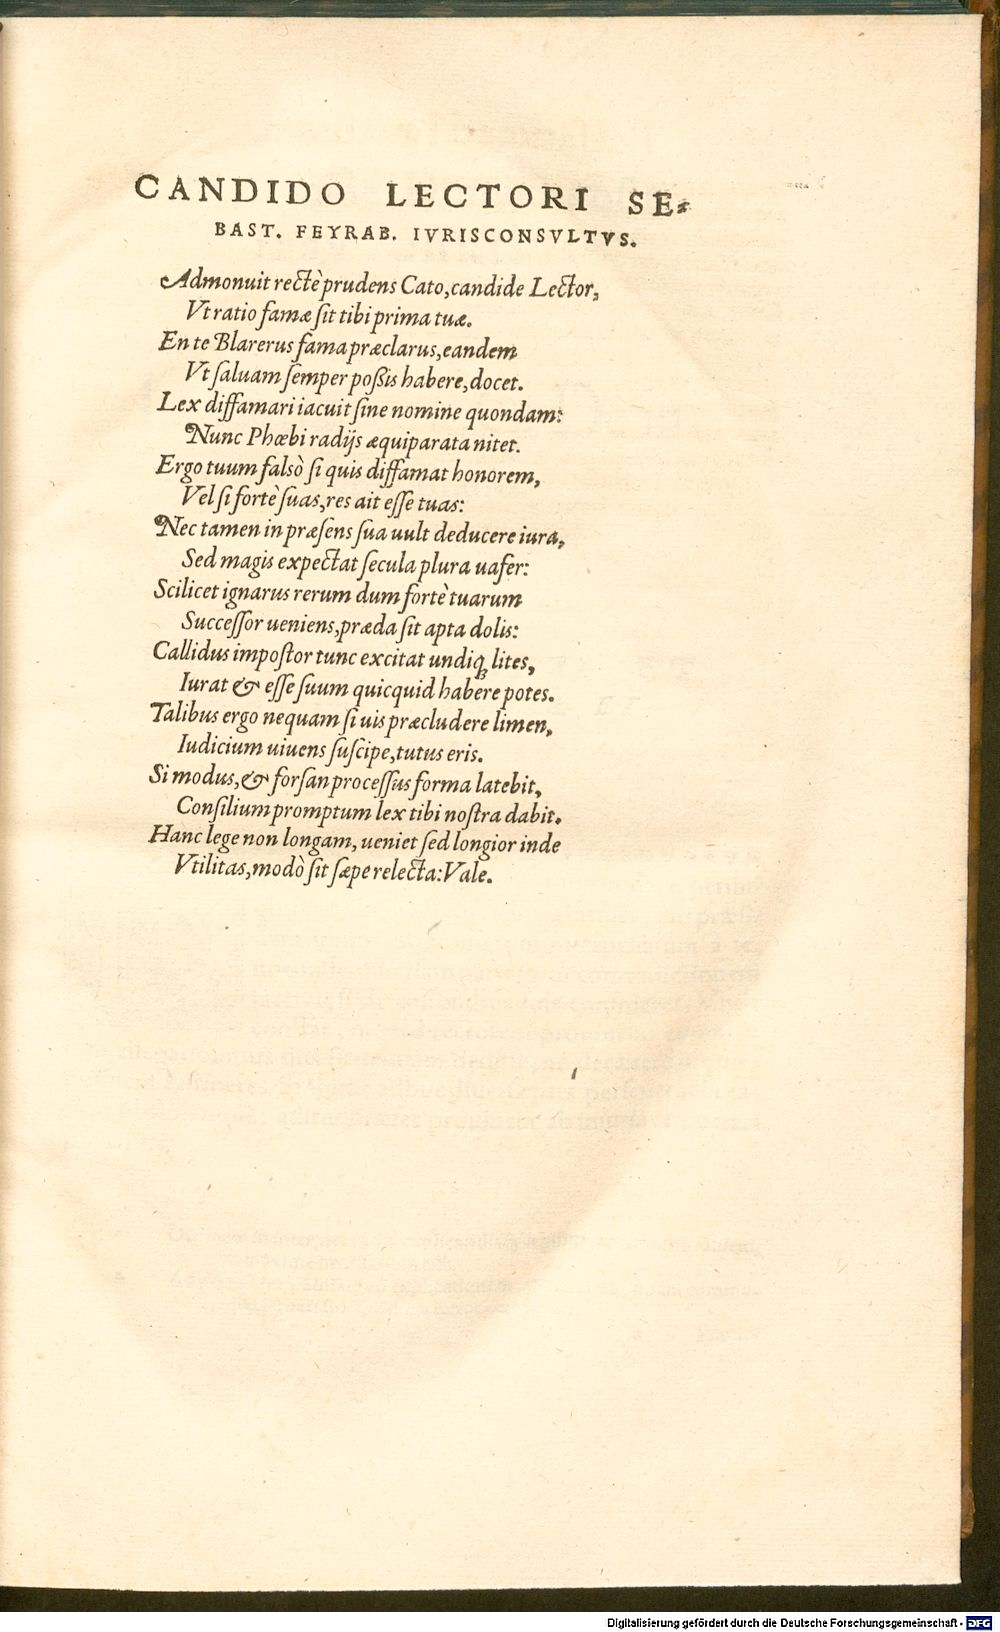 CANDIDO LECTORI SE⸗
BAST. FEYRAB. IVRISCONSVLTVS.
Admonuit rectè prudens Cato, candide Lector,
Vt ratio famæ ſit tibi prima tuæ.
En te Blarerus fama præclarus, eandem
Vt ſaluam ſemper poßis habere, docet.
Lex diffamari iacuit ſine nomine quondam:
Nunc Phœbi radijs æquiparata nitet.
Ergo tuum falsò ſi quis diffamat honorem,
Vel ſi fortè ſuas, res ait eſſe tuas:
Nec tamen in præſens ſua uult deducere iura,
Sed magis expectat ſecula plura uafer:
Scilicet ignarus rerum dum fortè tuarum
Succeſſor ueniens, præda ſit apta dolis:
Callidus impoſtor tunc excitat undiq; lites,
Iurat & eſſe ſuum quicquid habere potes.
Talibus ergo nequam ſi uis præcludere limen,
Iudicium uiuens ſuſcipe, tutus eris.
Si modus, & forſan proceſſus forma latebit,
Conſilium promptum lex tibi noſtra dabit.
Hanc lege non longam, ueniet ſed longior inde
Vtilitas, modò ſit ſæpe relecta: Vale.
Digitalisierung gefördert durch die Deutsche Forschungsgemeinschaft - DFG